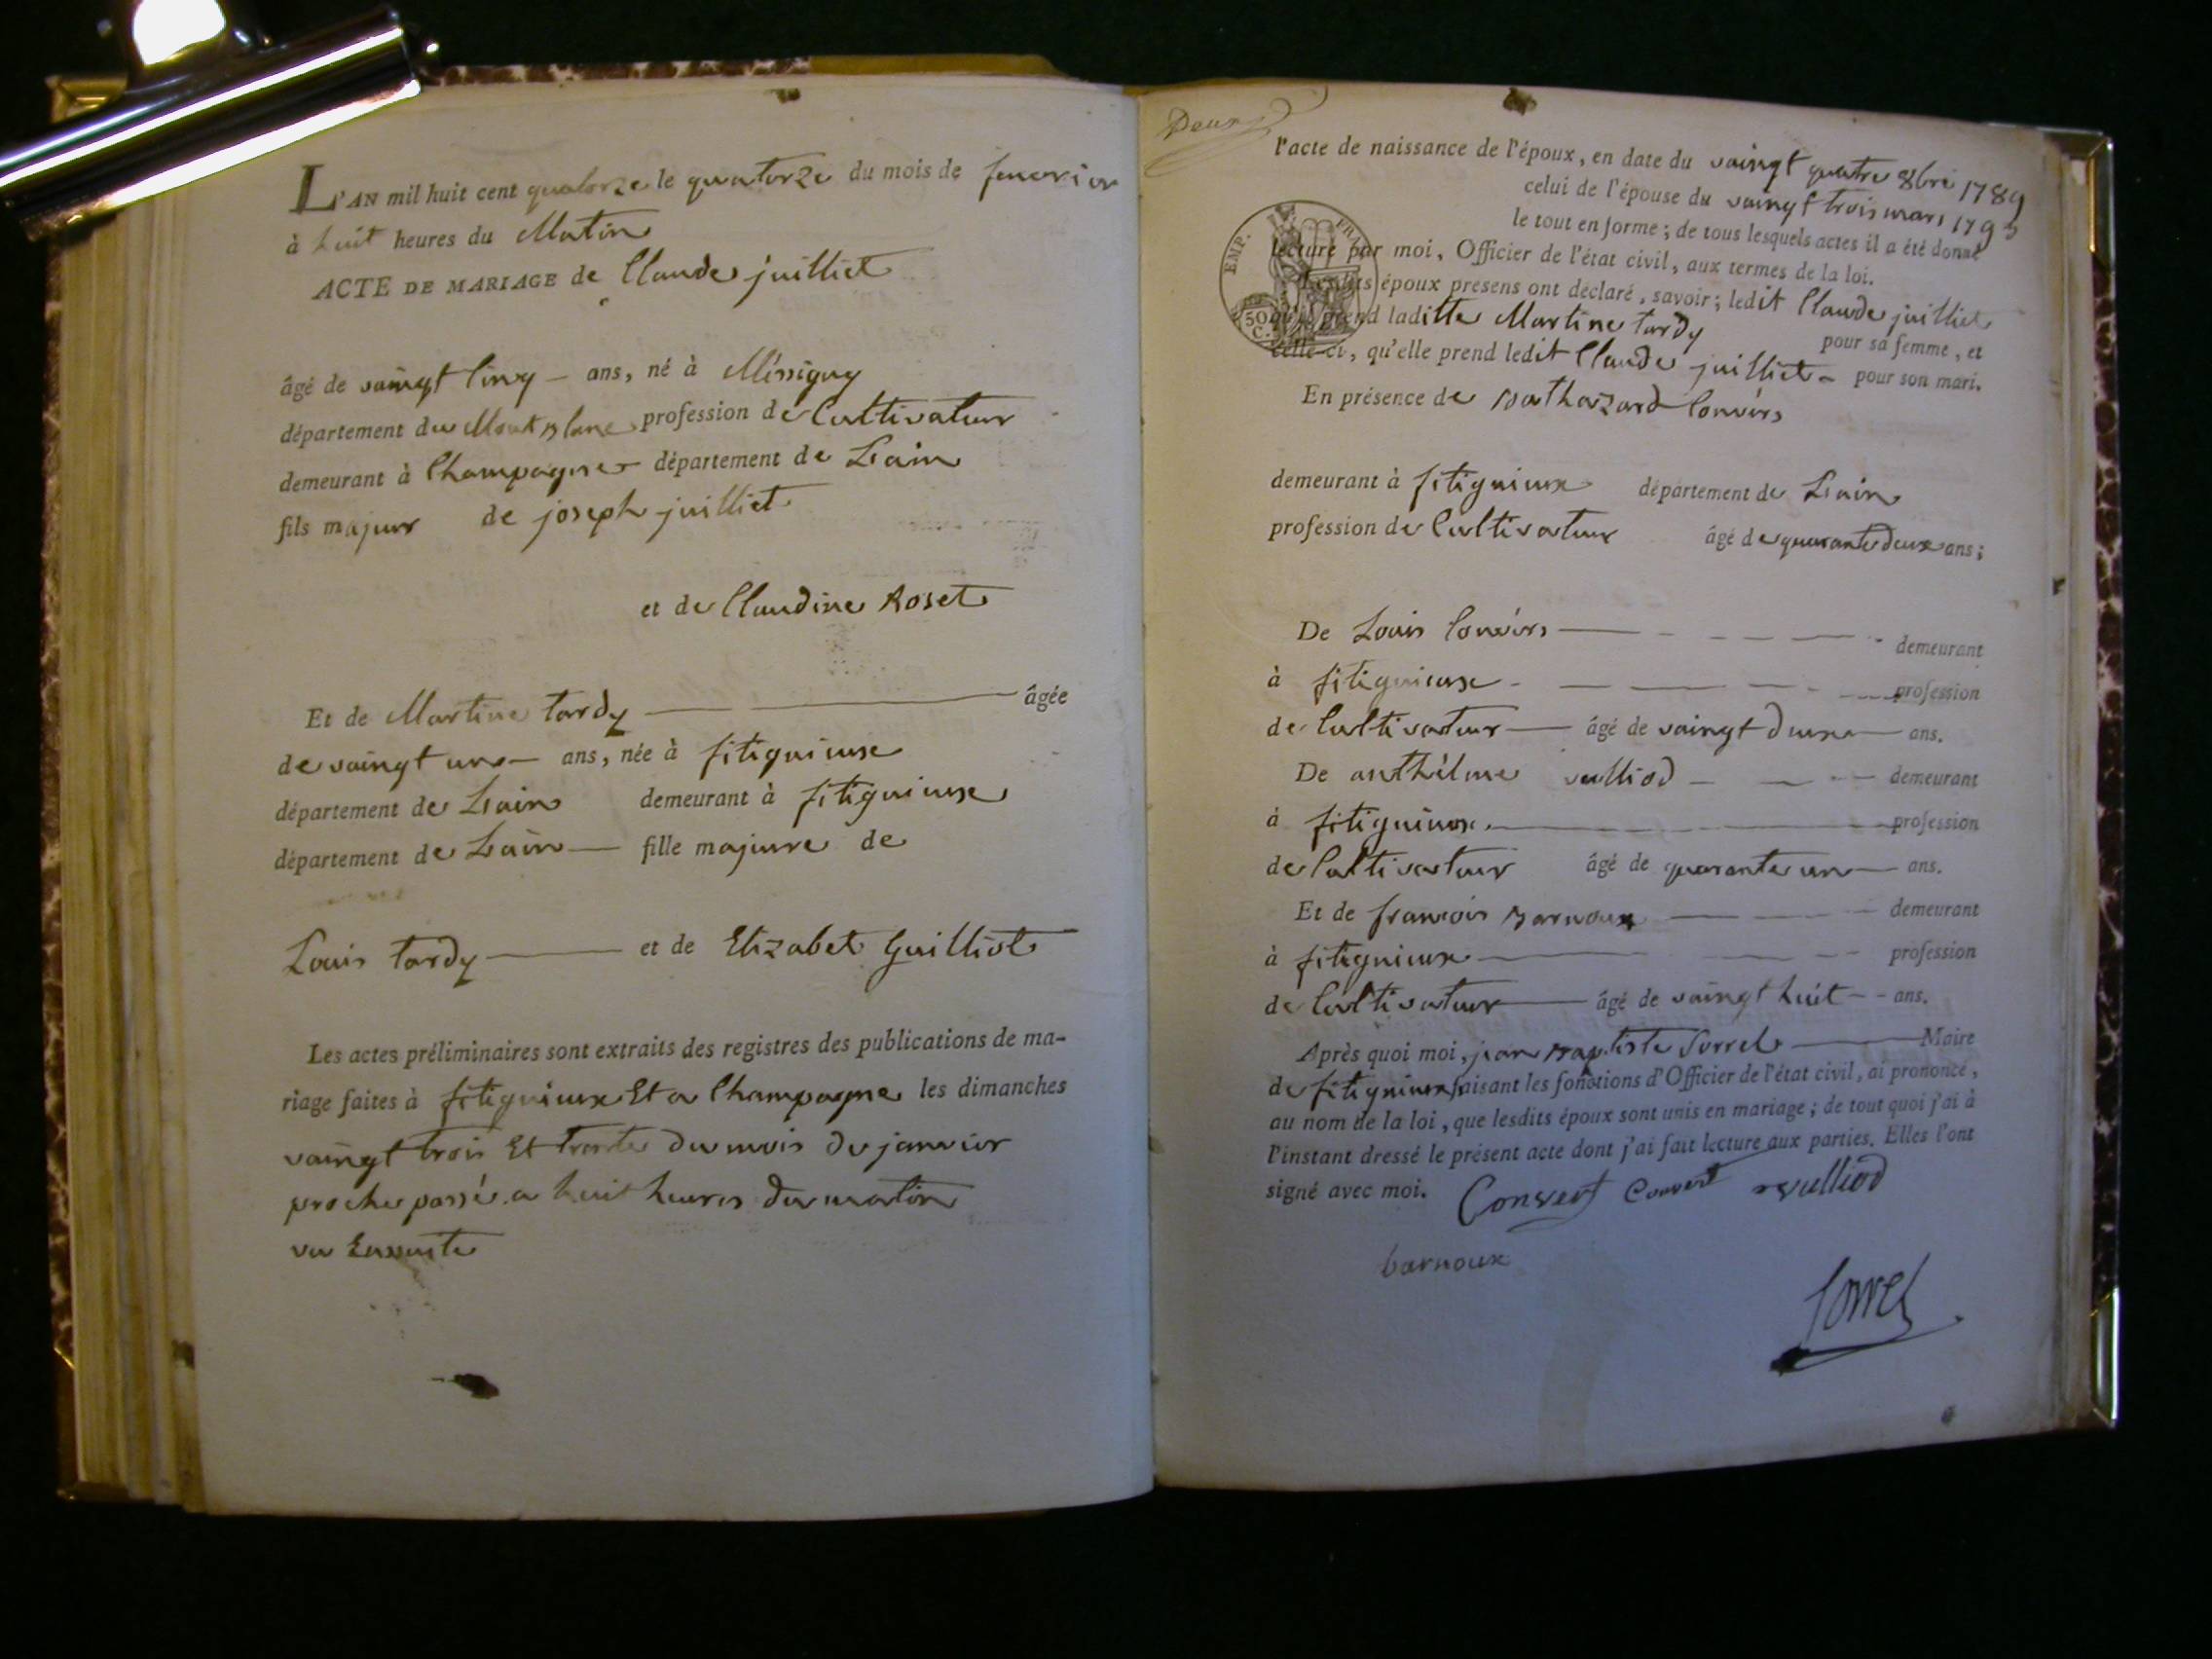 L'AN mil huit cent quatorze le quatorze du mois de feuvrier
à huit heures du Matin
ACTE DE MARIAGE de Claude juilliet
âgé de vaingt cinq — ans, né à Méssiguy
département du Mont blanc profession de Cultivateur
demeurant à Champagne — département de Lain
fils majeur de joseph juilliet
et de Claudine Roset
Et de Martine tardy — âgée
de vaingt une — ans, née à fitignieux
département de Lain demeurant à fitignieux
département de Lain — fille majeure de
Louis tardy — et de Elizabet Guilliot
Les actes préliminaires sont extraits des registres des publications de ma-
riage faites à fitignieux Et a Champagne les dimanches
vaingt trois Et trante du mois de janvier
proche passé a huit heures du matin
vu Ensuite
Deux
l'acte de naissance de l'époux, en date du vaingt quatre 8bre 1789
celui de l'épouse du vaingt trois mars 1793
le tout en forme ; de tous lesquels actes il a été donné
lecture par moi, Officier de l'état civil, aux termes de la loi.
Lesdits époux présens ont déclaré, savoir ; ledit Claude juilliet
qu'il prend laditte Martine tardy pour sa femme, et
celle-ci, qu'elle prend ledit Claude juilliet — pour son mari.
EMP. FRA
50
C.
En présence de Balthazard Convers
demeurant à fitignieux département de Lain
profession de Cultivateur âgé de quarante deux ans ;
De Louis Convers — demeurant
à fitignieux — profession
de Cultivateur — âgé de vaingt deux — ans.
De anthélme vulliod — demeurant
à fitignieux — profession
de Cultivateur âgé de quarante un — ans.
Et de francois Barnoux — demeurant
à fitignieux — profession
de Cultivateur — âgé de vaingt huit — ans.
Après quoi moi, jean Baptiste Sorrel — Maire
de fitignieux faisant les fonctions d'Officier de l'état civil, ai prononcé,
au nom de la loi, que lesdits époux sont unis en mariage ; de tout quoi j'ai à
l'instant dressé le présent acte dont j'ai fait lecture aux parties. Elles l'ont
signé avec moi. Convert Convert vulliod
barnoux
Sorrel